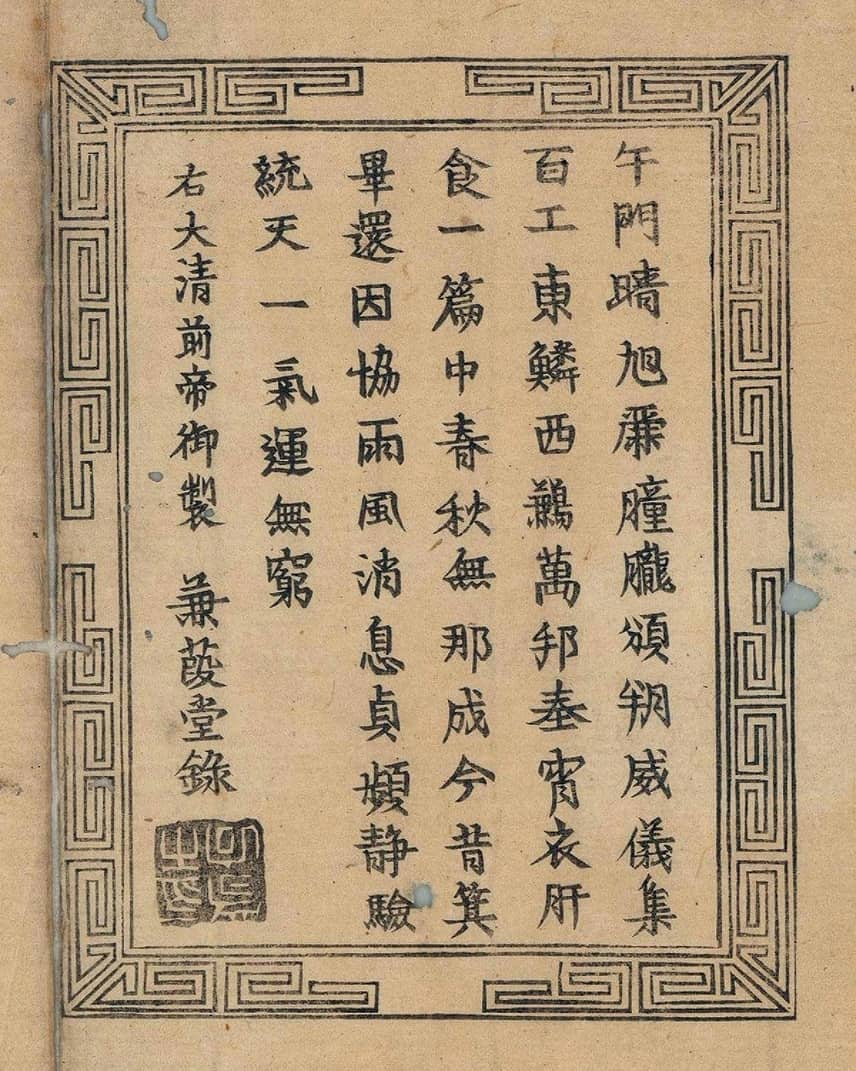 午門晴旭肅瞳朧頒朔威儀集
百工東鱗西鶼萬邦奉宵衣旰
食一篇中春秋無那成今昔箕
畢還因協雨風消息貞蠙静驗
統天一氣運無窮
右大清前帝御製 蒹葭堂錄